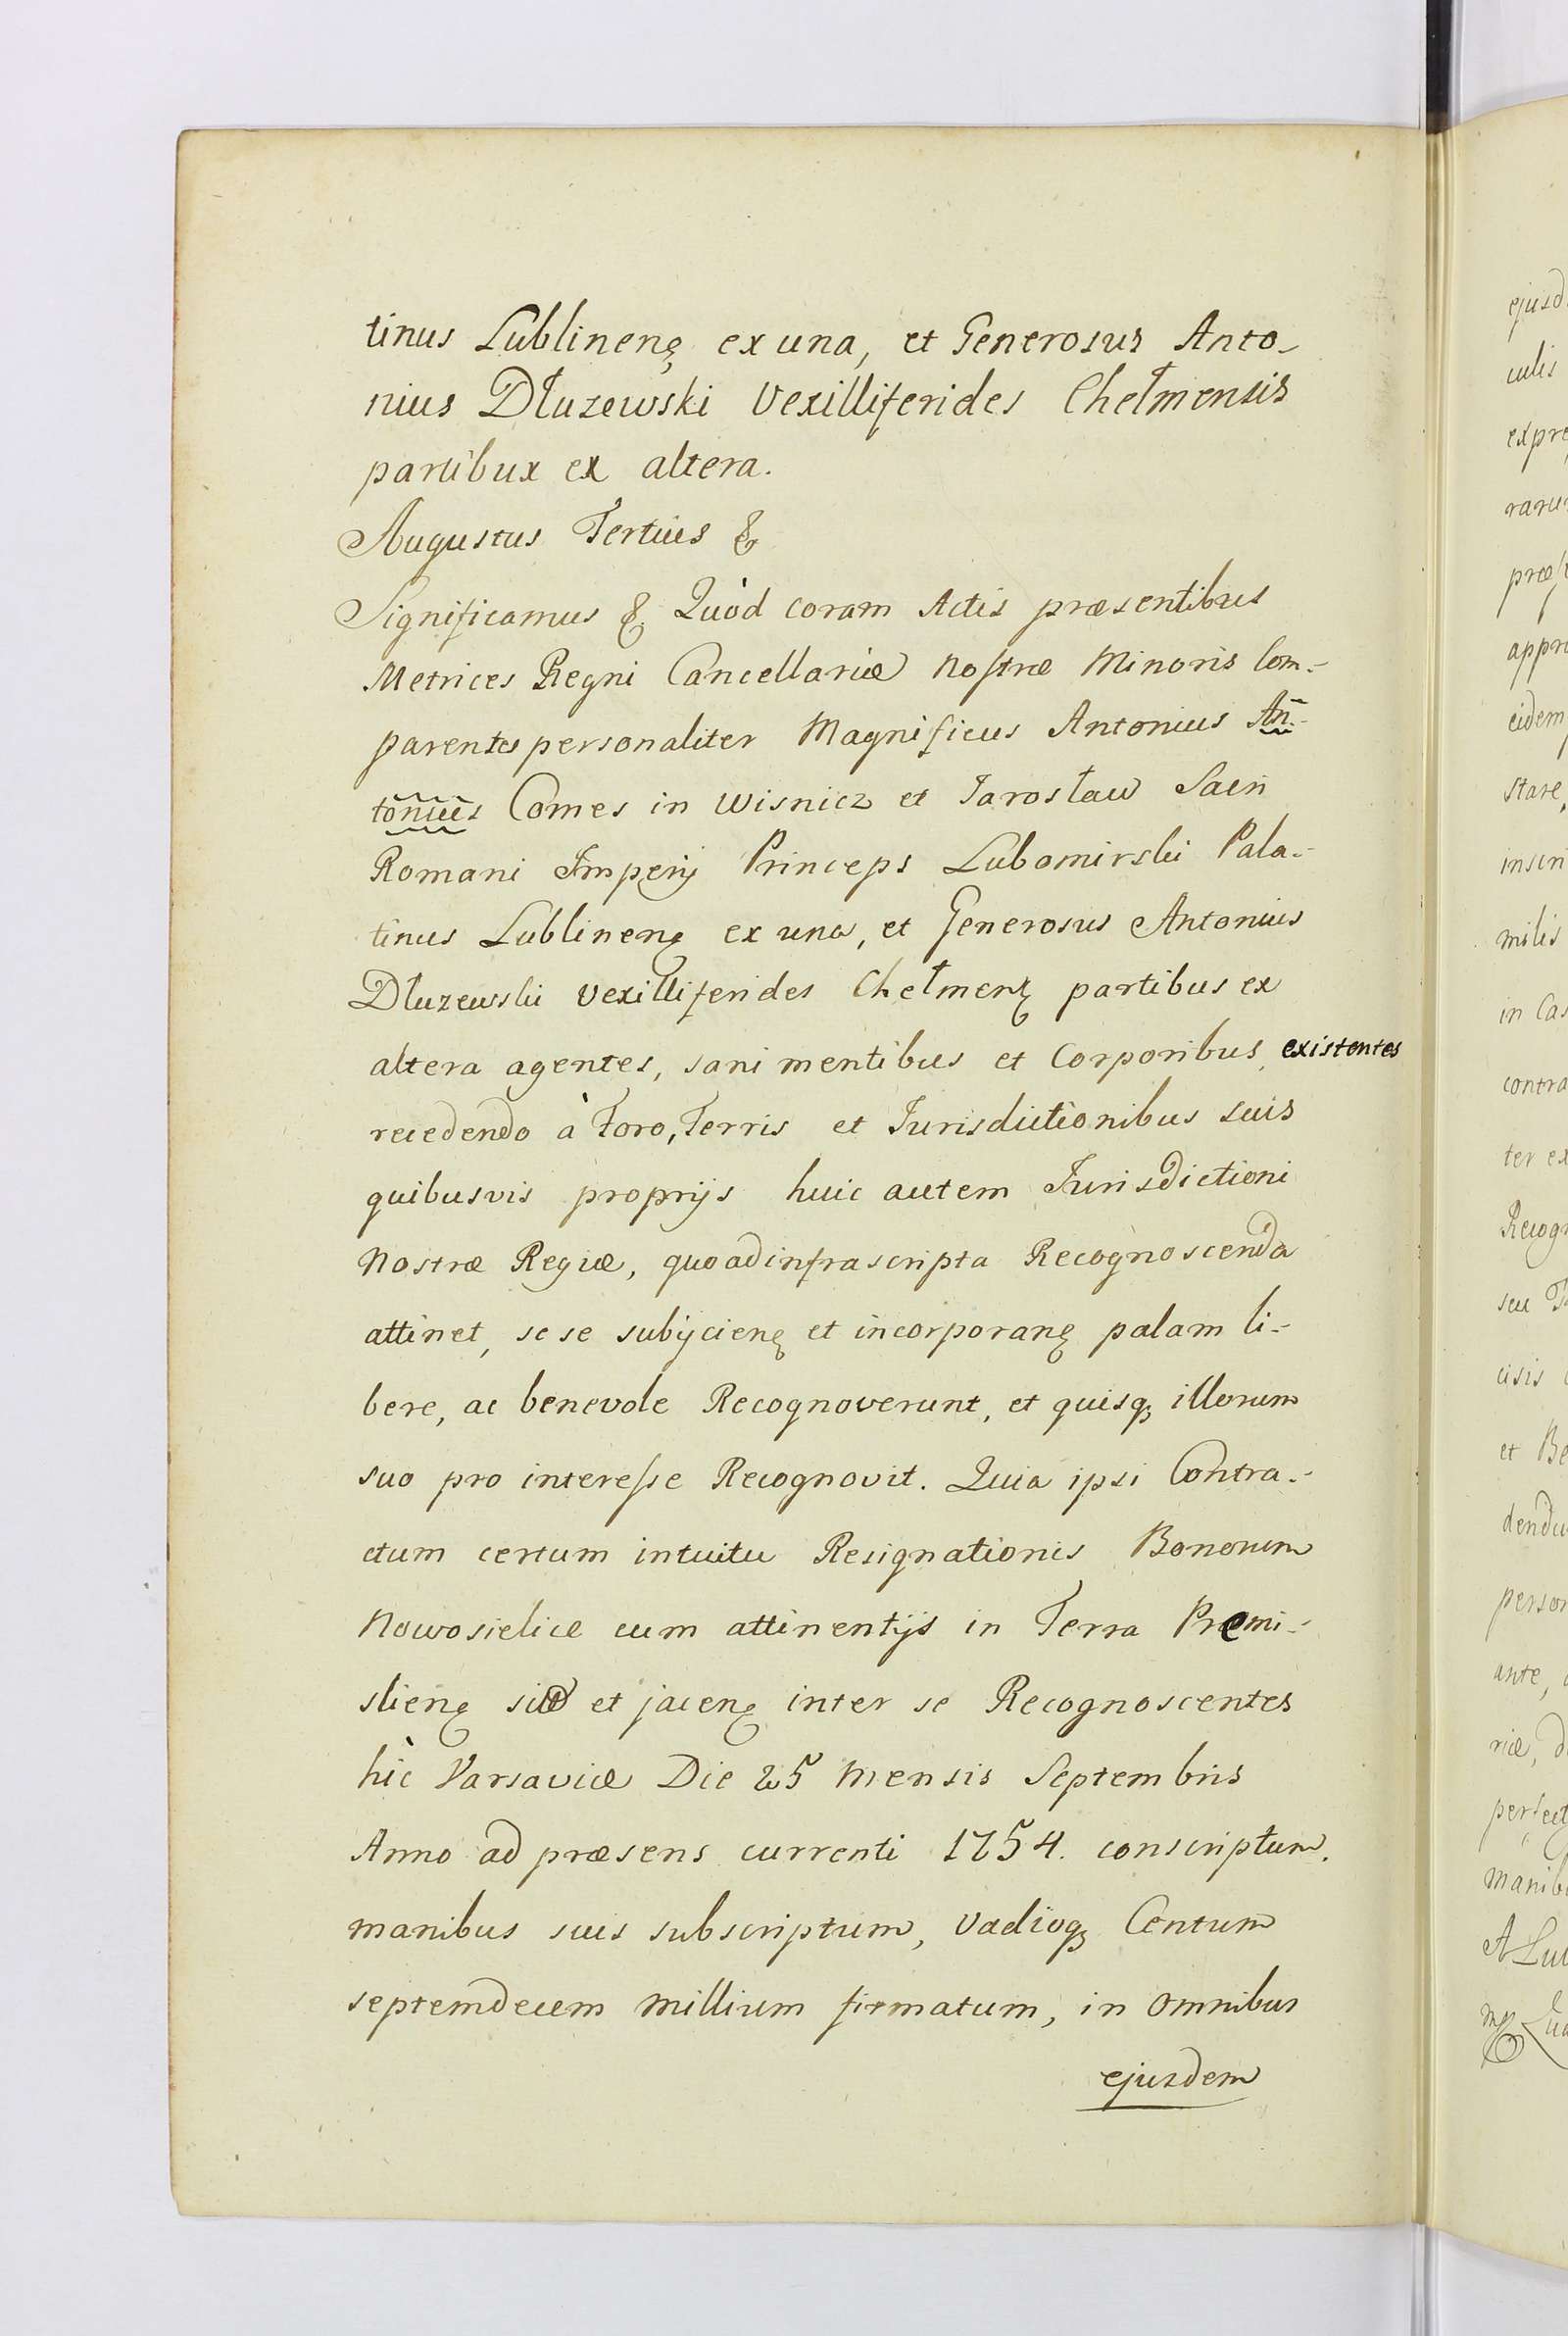 tinus Lublinenꝫ ex una, et Generosus Anto-
nius Dłuzewski Vexilliferides Chełmensis
partibux ex altera.
Augustus Tertius &
Significamus & Quòd coram Actis præsentibus
Metrices Regni Cancellariæ Noſtræ Minoris Com-
parentes personaliter Magnificus Antonius An-
tonius Comes in Wisnicz et Jarosław Sacri
Romani Imperij Princeps Lubomirski Pala-
tinus Lublinenꝫ ex una, et Generosus Antonius
Dłuzewski Vexilliferides Chełmenꝫ partibus ex
altera agentes, sani mentibus et Corporibus existentes
recedendo à Foro, Terris et Jurisdictionibus suis
quibusvis proprijs huic autem Jurisdictioni
Nostræ Regiæ, quoad infrascripta Recognoscenda
attinet, se se subijcienꝫ et incorporanꝫ palam li-
bere, ac benevole Recognoverunt, et quisqꝫ illorum
suo pro intereſse Recognovit. Quia ipsi Contra-
ctum certum intuitu Resignationis Bonorum
Nowosielice cum attinentijs in Terra Premi-
slienꝫ et jacenꝫ inter se Recognoscentes
hìc Varsaviæ Die 25 Mensis Septembris
Anno ad præsens currenti 1754. conscriptum.
manibus suis subscriptum, Vadioqꝫ Centum
septemdecem Millium firmatum, in omnibus
ejusdem
ejusd
culis
expre
rarum
præſ
appro
eidem
stare,
inscri
milis
in Cas
contra
ter ex
Recogn
seu
cisis
et Be
dendu
person
ante,
riæ, d
perfect
manib
A Lu